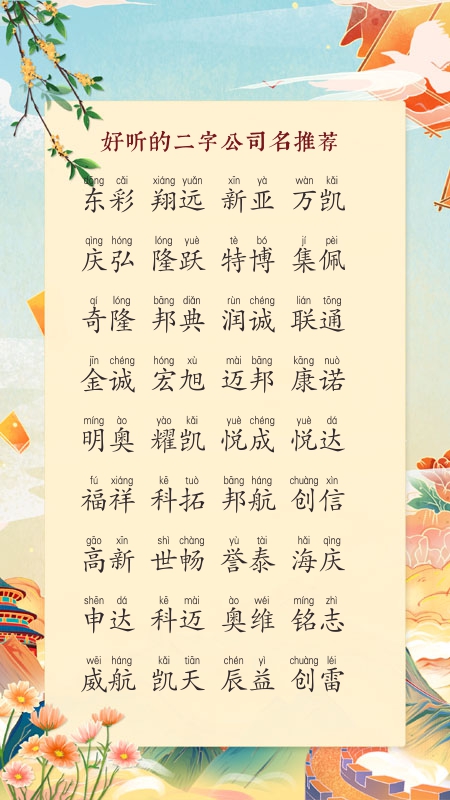 好听的二字公司名推荐
dōng cǎi xiáng yuǎn xīn yà wàn kǎi
东彩 翔远 新亚 万凯
qìng hóng lóng yuè tè bó jí pèi
庆弘 隆跃 特博 集佩
qí lóng bāng diǎn rùn chéng lián tōng
奇隆 邦典 润诚 联通
jīn chéng hóng xù mài bāng kāng nuò
金诚 宏旭 迈邦 康诺
míng ào yào kǎi yuè chéng yuè dá
明奥 耀凯 悦成 悦达
fú xiáng kē tuò bāng háng chuàng xìn
福祥 科拓 邦航 创信
gāo xīn shì chàng yù tài hǎi qìng
高新 世畅 誉泰 海庆
shēn dá kē mài ào wéi míng zhì
申达 科迈 奥维 铭志
wēi háng kǎi tiān chén yì chuàng léi
威航 凯天 辰益 创雷